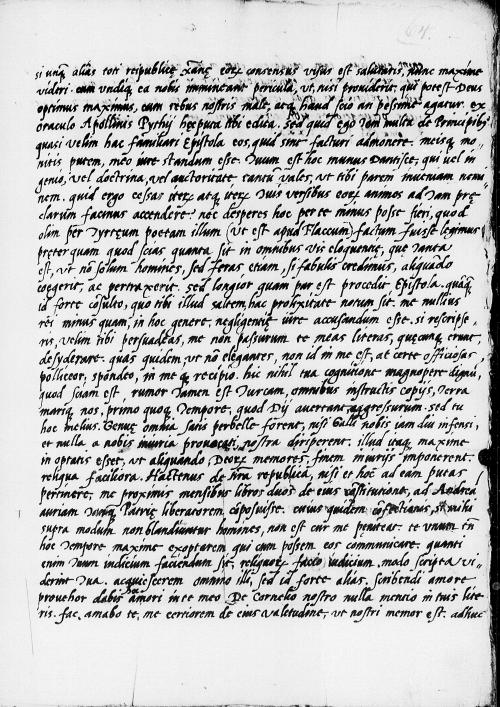 64.
si unq̃ alias toti reipublicę xanę eorx consensus visus est salutaris, nunc maxime
videri. cum undiq; ea nobis immineant pericula, ut, nisi prouiderit, qui potest Deus
optimus maximus, cum rebus nostris male, atq; haud scio an pessime agatur. ex
oraculo Apollinis Pythij hęc puta tibi edita. Sed quid ego tam multa de Principibus
quasi uelim hac familiari Epistola eos, quid sint facturi admonere. meisq; mo-
nitis putem, meo iure standum esse. Tuum est hoc munus Dantisce, qui uel in
genio, uel doctrina, vel auctoritate tantum vales, ut tibi parem inueniam nemi
nem. quid ergo cessas iterx atq; iterx tuis versibus eorx animos ad tam prę
clarum facinus accendere? nec desperes hoc per te minus posse fieri, quod
olim per Tyrtęum poetam illum (ut est apud Flaccum) factum fuisse legimus
pręterquam quod scias quanta sit in omnibus vis eloquentię, quę tanta
est, ut nõ solum homines, sed feras etiam, si fabulis credimus, aliquãdo
coegerit, ac pertraxerit. sed longior quam par est procedit Epistola. quãq̃
id forte cõsulto, quo tibi illud saltem, hac prolixitate notum sit. me nullius
rei minus quam, in hoc genere, negligentię iure accusandum esse. si rescripse-
ris, velim tibi persuadeas, me non passurum te meas literas, quęcunq; erunt,
desyderare. quas quidem, ut nõ elegantes, non id in me est, at certe officiosas
polliceor, spondeo, in me q; recipio. hic nihil tua cognitione magnopere dignũ,
quod sciam est, rumor tamen est Turcam, omnibus instructis copijs, terra
mariq; nos, primo quoq; tempore. quod Dij auertant aggressurum. sed tu
hoc melius. Genuę omnia satis perbelle forent, nisi Galli nobis iam diu infensi,
et nulla a nobis iniuria prouocati, nostra diriperent. illud itaq; maxime
in optatis esset, ut aliquando, Deorx memores, finem iniurijs imponerent.
reliqua faciliora. Hactenus de nr̃a republica, nisi et hoc ad eam putas
pertinere, me proximis mensibus libros duos de eius cõstitutione, ad Andreã
auriam Patrię liberatorem cõposuisse. cuius quidem cõfectionis, si mihi
supra modum non blandiuntur homines, non est cur me pęniteat. te unum tñ
hoc tempore maxime exoptarem qui cum possem eos communicare. quanti
enim tuum iudicium faciendum sit, reliquorx facio iudicium. modo scripta vi-
derint tua. acquiescerem omnino illi, sed id forte alias. scribendi amore
prouehor dabis hęc amori in te meo. De Cornelio nostro nulla mentio in tuis lite
ris. fac, amabo te, me certiorem de eius valetudine, ut nostri memor est. adhuc